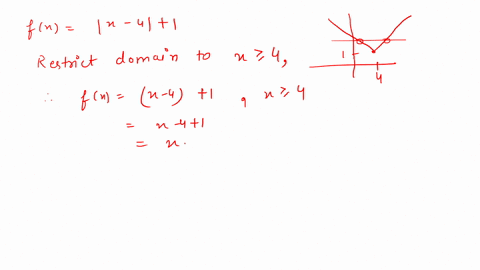 f(x) = |x-4| + 1
Restrict domain to x ≥ 4,
∴ f(x) = (x-4) + 1 , x ≥ 4
= x-4+1
= x.
1
4